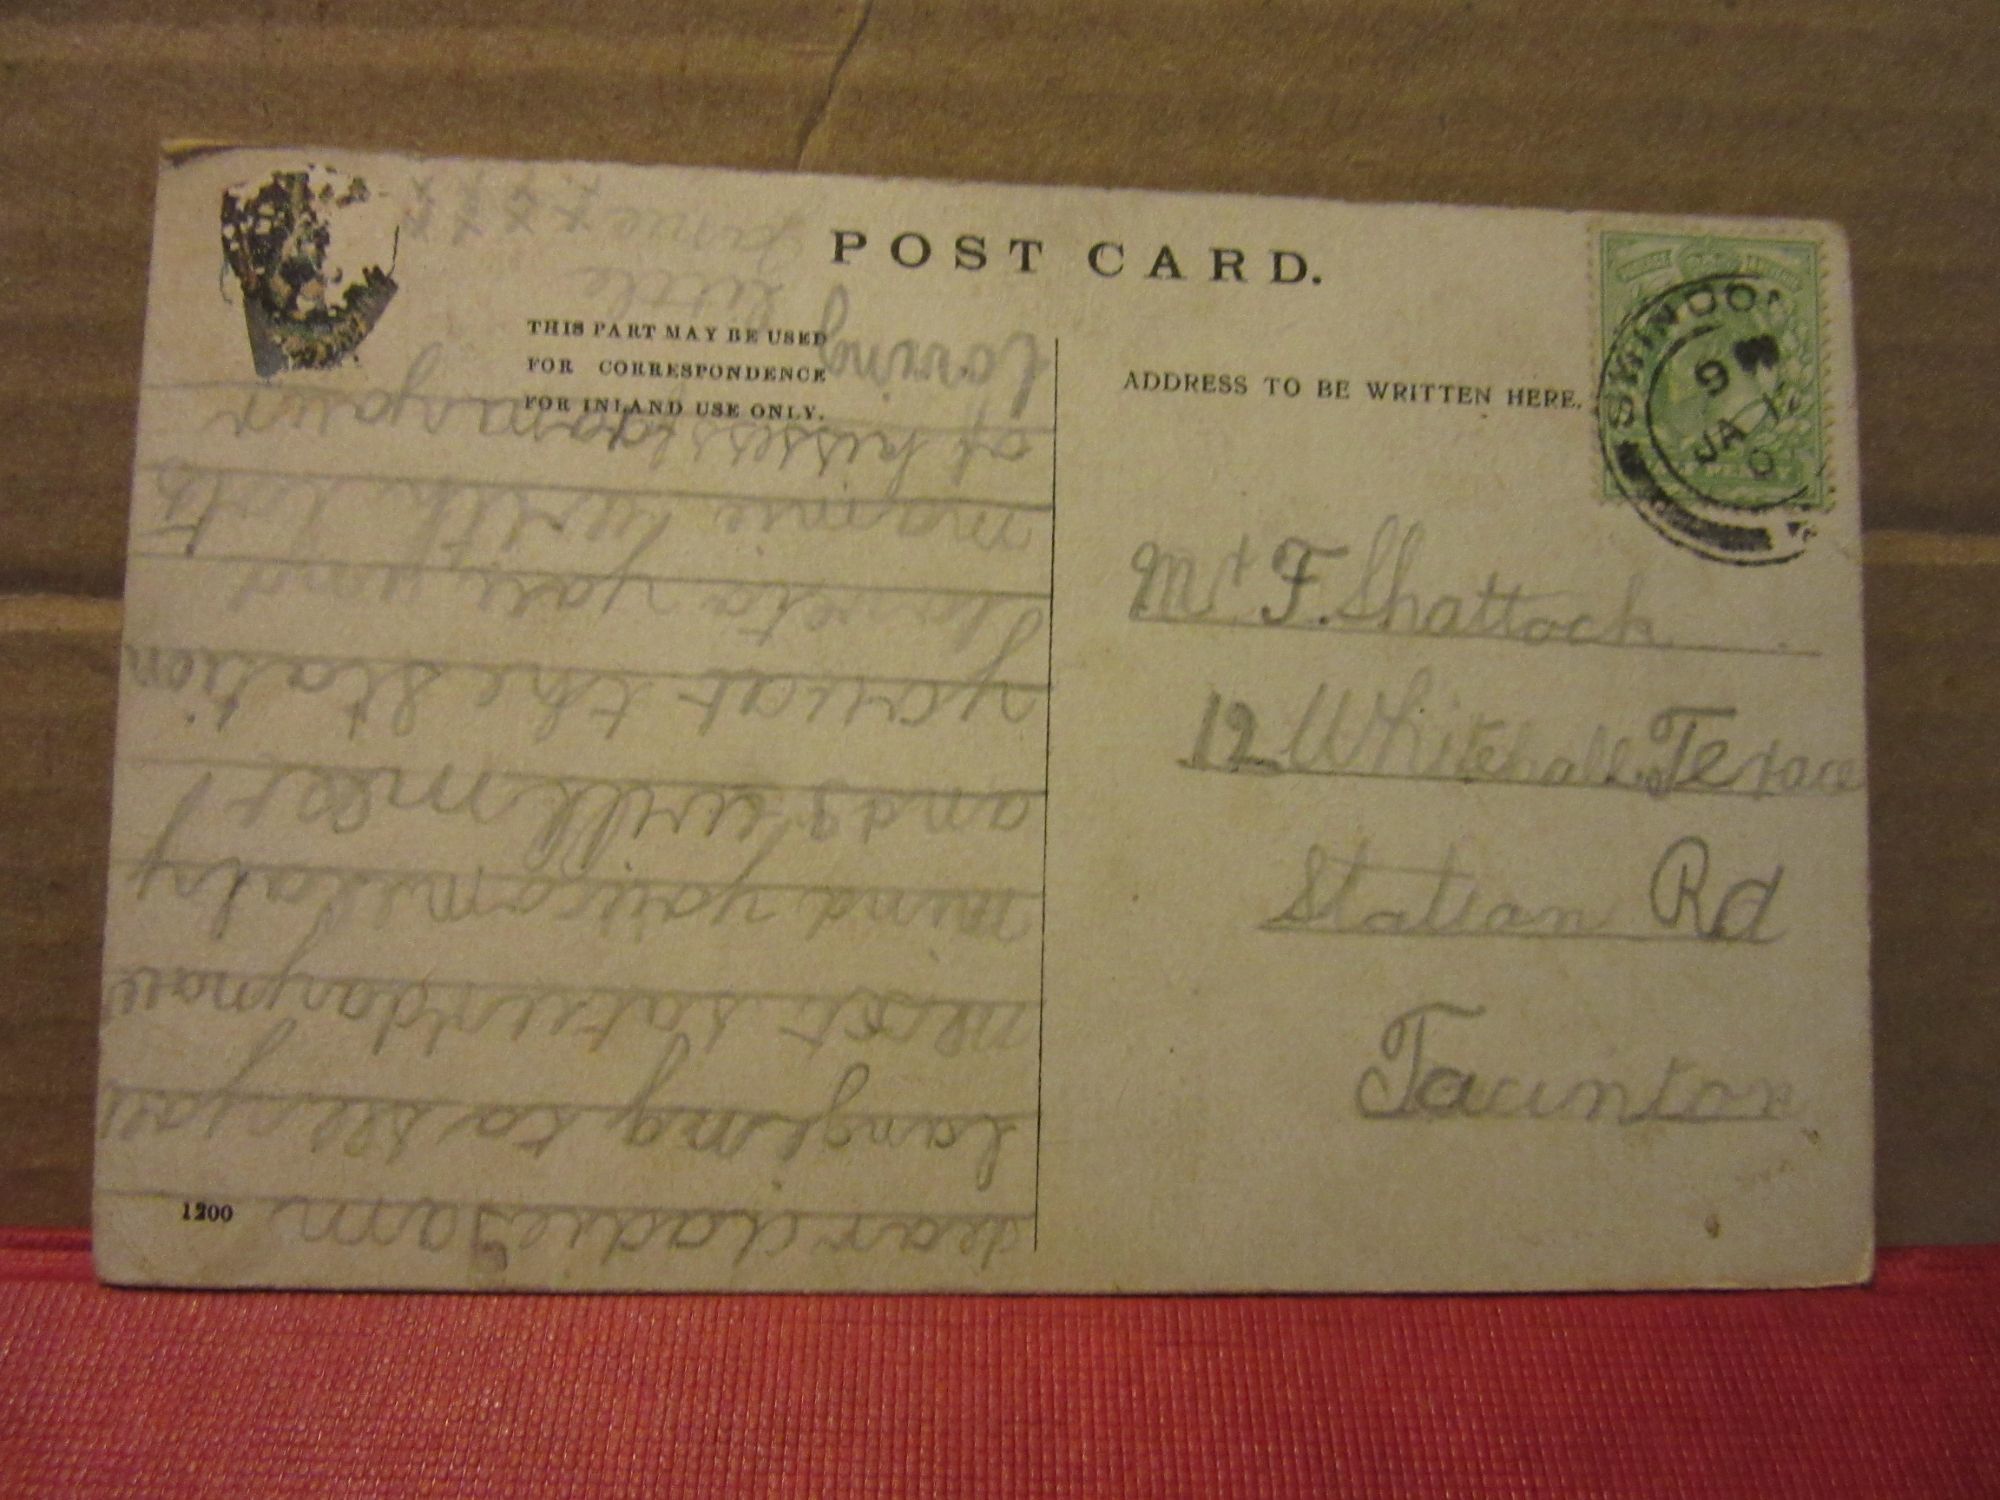 POST CARD.
THIS PART MAY BE USED
FOR CORRESPONDENCE
FOR INLAND USE ONLY.
ADDRESS TO BE WRITTEN HERE.
SWINDON
9
JA 12
0
Mr F. Shattock
12 Whitehall Terace
Station Rd
Taunton
1200
dear dadie I am
longing to see you
next saturday now
mind you come
and I will meet
you at the station
love to you and
mamie with lots
of kisses from your
loving little
xxxx